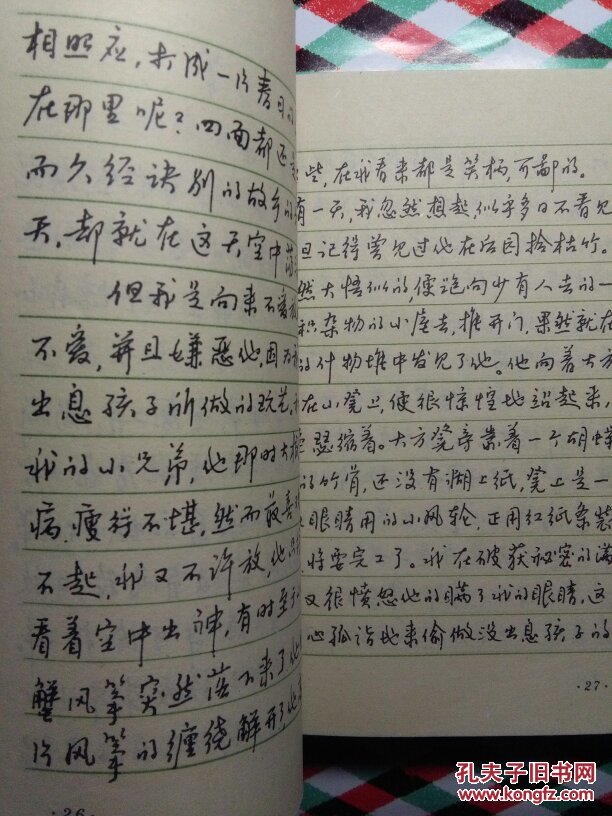 相照应，打成一片春日的
在那里呢？四面都还
而久经诀别的故乡的
天，却就在这天空中荡
但我是向来不爱放
不爱，并且嫌恶他，因为
出息孩子所做的玩艺。
我的小兄弟，他那时大概
病，瘦得不堪，然而最喜
不起，我又不许放，他只
看着空中出神，有时至于
蟹风筝突然落下来了，他
片风筝的缠绕解开了，他
·26·
些，在我看来都是笑柄，可鄙的。
有一天，我忽然想起，似乎多日不看见
但记得曾见过他在后园拾枯竹。
然大悟似的，便跑向少有人去的一
积杂物的小屋去，推开门，果然就在
的什物堆中发见了他。他向着大方
在小凳上，便很惊惶地站起来，
瑟缩着。大方凳旁靠着一个胡蝶
的竹骨，还没有糊上纸，凳上是一
眼睛用的小风轮，正用红纸条装
将要完工了。我在破获秘密的满
又很愤怒他的瞒了我的眼睛，这
心孤诣地来偷做没出息孩子的
·27·
孔夫子旧书网
www.kongfz.com